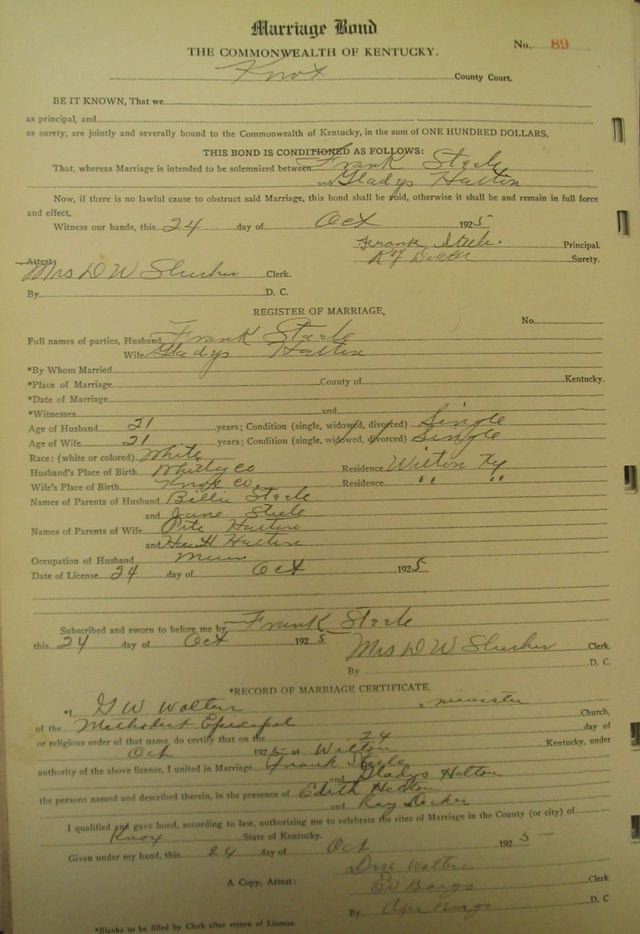 Marriage Bond
THE COMMONWEALTH OF KENTUCKY. No. 89
Knox County Court.
BE IT KNOWN, That we
as principal, and
as surety, are jointly and severally bound to the Commonwealth of Kentucky, in the sum of ONE HUNDRED DOLLARS.
THIS BOND IS CONDITIONED AS FOLLOWS:
That, whereas Marriage is intended to be solemnized between Frank Steele
and Gladys Halten
Now, if there is no lawful cause to obstruct said Marriage, this bond shall be void, otherwise it shall be and remain in full force
and effect,
Witness our hands, this 24 day of Oct 1925
Frank Steele. Principal.
Surety.
Attest:
Mrs D W Slusher Clerk.
By D. C.
REGISTER OF MARRIAGE,
No.
Full names of parties, Husband Frank Steele
Wife Gladys Halten
*By Whom Married
*Place of Marriage County of Kentucky.
*Date of Marriage
*Witnesses and
Age of Husband 21 years; Condition (single, widowed, divorced) Single
Age of Wife 21 years; Condition (single, widowed, divorced) Single
Race: (white or colored) White
Husband's Place of Birth Whitley Co Residence Wilton Ky
Wife's Place of Birth Knox Co, Residence " " " "
Names of Parents of Husband Billie Steele
and June Steele
Names of Parents of Wife Pite Halten
and Halten
Occupation of Husband
Date of License 24 day of Oct 1925
Subscribed and sworn to before me by Frank Steele
this 24 day of Oct 1925 Mrs D W Slusher Clerk.
By D. C.
*RECORD OF MARRIAGE CERTIFICATE,
*I, G W Walters a minister
of the Methodist Episcopal Church,
or religious order of that name, do certify that on the 24 day of
Oct 1925 at Wilton Kentucky, under
authority of the above license, I united in Marriage Frank Steele
and Gladys Helton
the persons named and described therein, in the presence of Edith Hedton
and Ray Decker
I qualified and gave bond, according to law, authorizing me to celebrate the rites of Marriage in the County (or city) of
Knox State of Kentucky.
Given under my hand, this 24 day of Oct 1925
Walters
A Copy, Attest: Clerk
By D. C
*Blanks to be filled by Clerk after return of License.